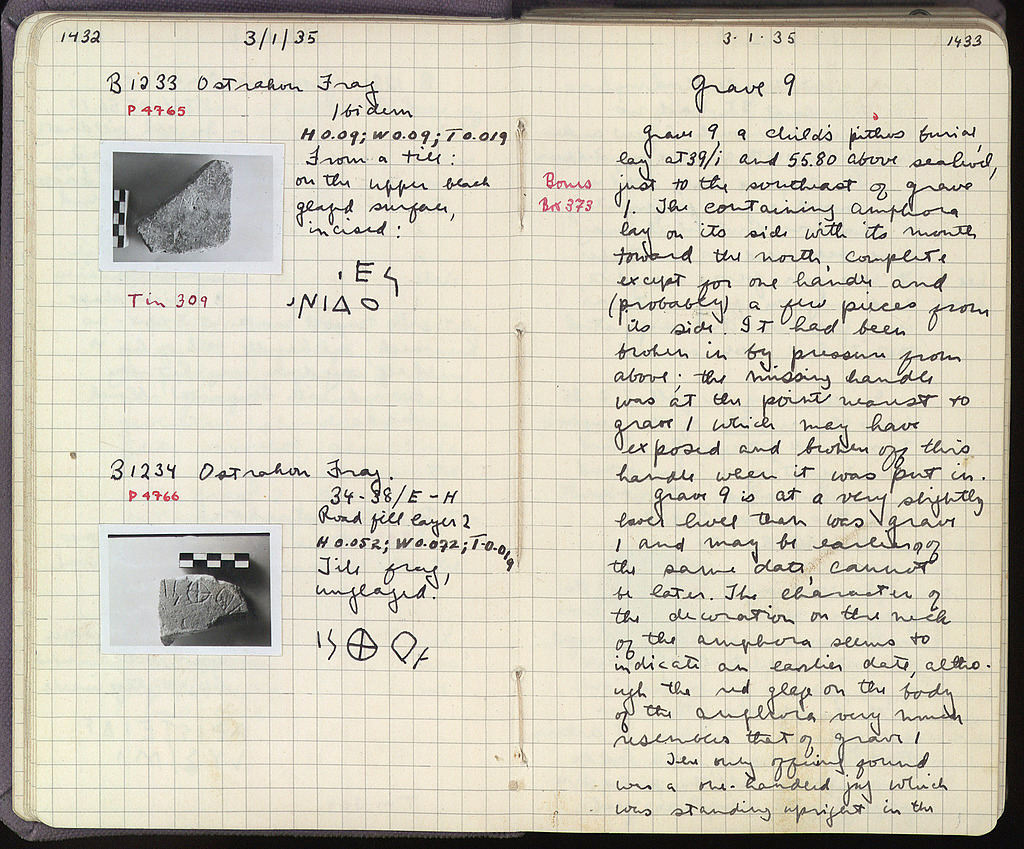 1432
3/1/35
B 1233 Ostrakon Frag
P 4765
Ibidem
H 0.09; W 0.09; T 0.019
From a tile:
on the upper black
glazed surface,
incised:
Tin 309
B 1234 Ostrakon Frag.
P 4766
34-38/E-H
Road fill layer 2
H 0.052; W 0.072; T 0.019
Tile frag,
unglazed.
3·1·35
1433
Grave 9
Grave 9 a child's pithos burial
lay at 39/i and 55.80 above sealevel,
Bones
Box 373
just to the southeast of grave
1. The containing amphora
lay on its side with its mouth
toward the north, complete
except for one handle and
(probably) a few pieces from
its side. It had been
broken in by pressure from
above; the missing handle
was at the point nearest to
grave 1 which may have
exposed and broken off this
handle when it was put in.
Grave 9 is at a very slightly
lower level than was grave
1 and may be earlier or of
the same date, cannot
be later. The character of
the decoration on the neck
of the amphora seems to
indicate an earlier date, altho-
ugh the red glaze on the body
of the amphora very much
resembles that of grave 1
The only offering found
was a one-handled jug which
was standing upright in the